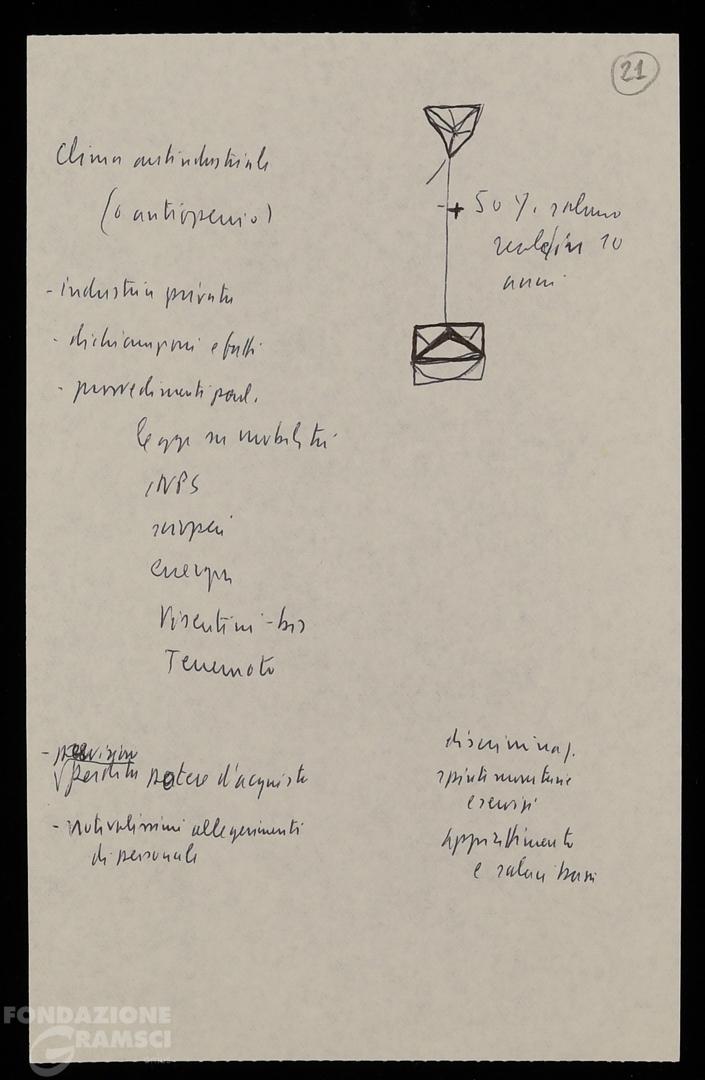 21
Clima antindustriale
(o antioperaio)
+ 50 % salario
reale/in 10
anni
- industria privata
- dichiarazioni e fatti
- provvedimenti parl.
legge su mobilità
INPS
scioperi
energia
Visentini-bis
Terremoto
- perdita potere d'acquisto
- notevolissimi alleggerimenti
di personale
discriminaz.
spinte monetarie
appiattimento
e salari bassi
FONDAZIONE
GRAMSCI